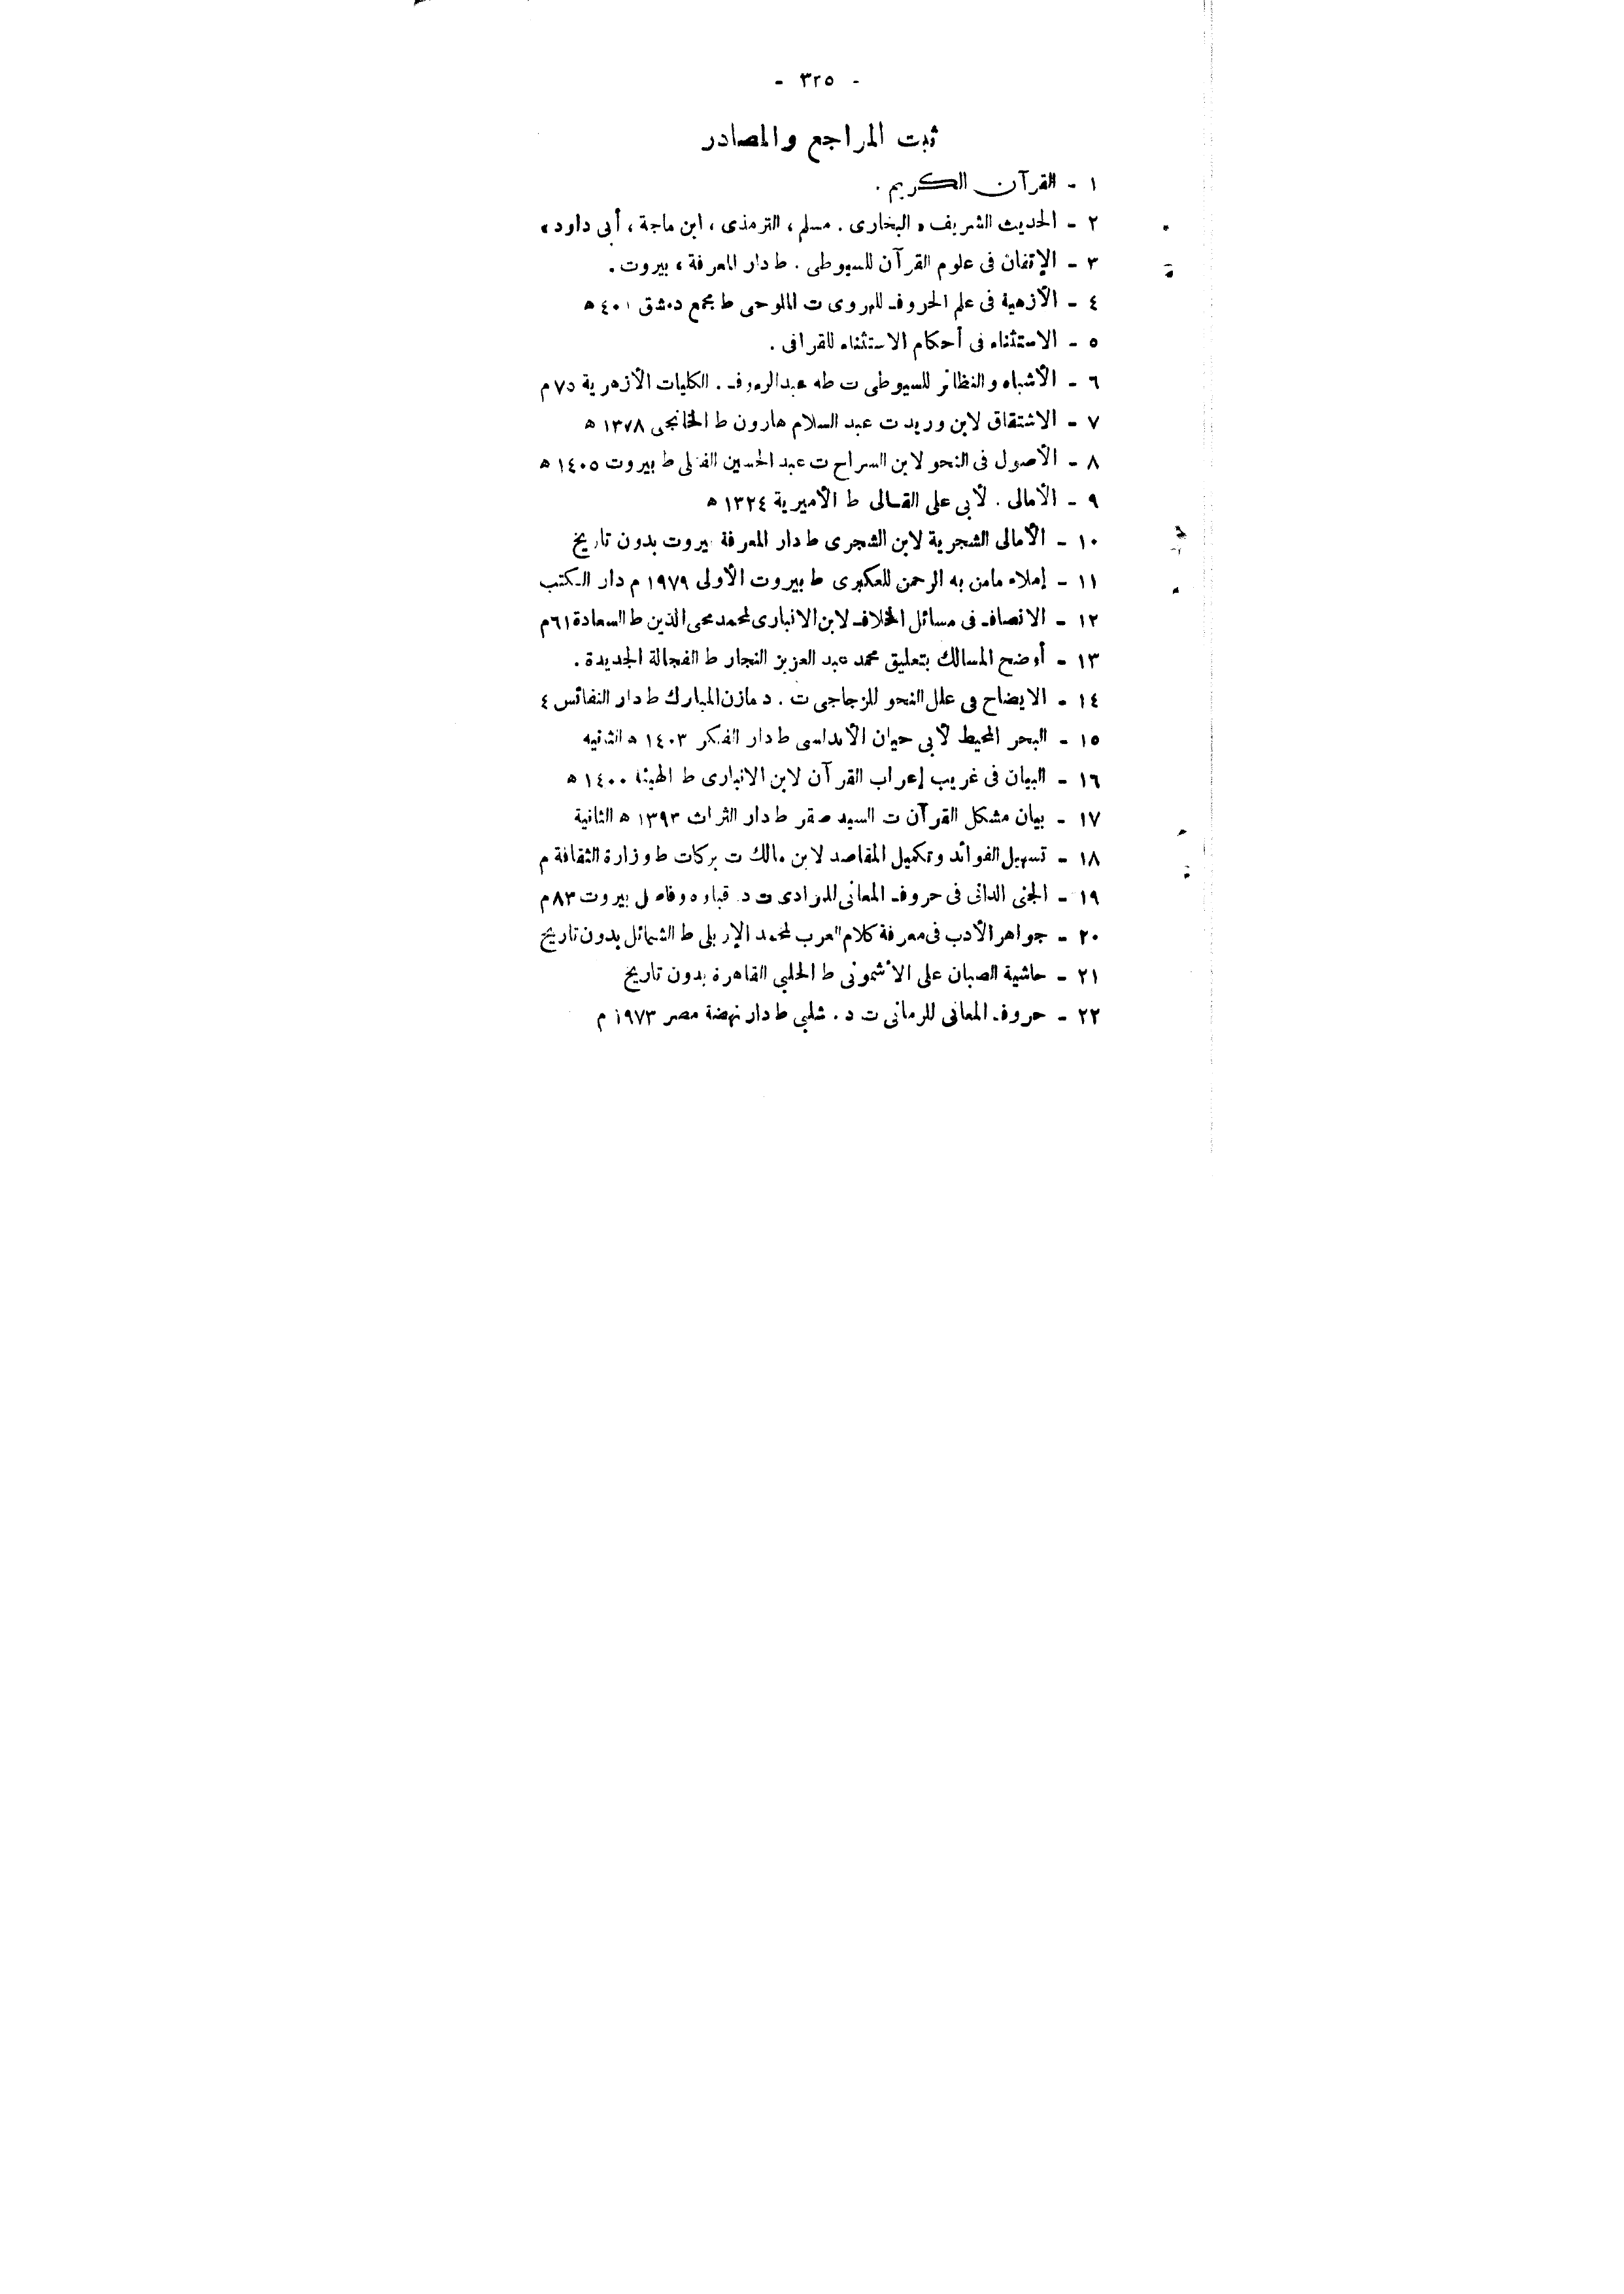 - ٣٢٥ -
ثبت المراجع والمصادر
١ - القرآن الكريم .
٢ - الحديث الشريف « البخارى . مسلم ، الترمذى ، ابن ماجة ، أبى داود »
٣ - الإتقان فى علوم القرآن للسيوطى . ط دار المعرفة ، بيروت .
٤ - الأزهية فى علم الحروف للهروى ت الملوحى ط مجمع دمشق ١٤٠١ ه
٥ - الاستثناء فى أحكام الاستثناء للقرافى .
٦ - الأشباه والنظائر للسيوطى ت طه عبد الرءوف . الكليات الأزهرية ٧٥ م
٧ - الاشتقاق لابن وريد ت عبد السلام هارون ط الخانجى ١٣٧٨ ه
٨ - الأصول فى النحو لابن السراج ت عبد الحسين الفتلى ط بيروت ١٤٠٥ ه
٩ - الأمالى . لأبى على القالى ط الأميرية ١٣٢٤ ه
١٠ - الأمالى الشجرية لابن الشجرى ط دار المعرفة بيروت بدون تاريخ
١١ - إملاء مامن به الرحمن للعكبرى ط بيروت الأولى ١٩٧٩ م دار الكتب
١٢ - الانصاف فى مسائل الخلاف لابن الانبارى لمحمد محى الدين ط السعادة ٦١ م
١٣ - أوضح المسالك بتعليق محمد عبد العزيز النجار ط الفجالة الجديدة .
١٤ - الايضاح فى علل النحو للزجاجى ت . د مازن المبارك ط دار النفائس ٤
١٥ - البحر المحيط لأبى حيان الأندلسى ط دار الفكر ١٤٠٣ ه الثانية
١٦ - البيان فى غريب إعراب القرآن لابن الانبارى ط الهيئة ١٤٠٠ ه
١٧ - بيان مشكل القرآن ت السيد صقر ط دار التراث ١٣٩٣ ه الثانية
١٨ - تسهيل الفوائد وتكميل المقاصد لابن مالك ت بركات ط وزارة الثقافة م
١٩ - الجنى الدانى فى حروف المعانى للمرادى ت د. قباوه وفاضل بيروت ٨٣ م
٢٠ - جواهر الأدب فى معرفة كلام العرب لمحمد الإربلى ط الشمائل بدون تاريخ
٢١ - حاشية الصبان على الأشمونى ط الحلبي القاهرة بدون تاريخ
٢٢ - حروف المعانى للرمانى ت د . شلبي ط دار نهضة مصر ١٩٧٣ م